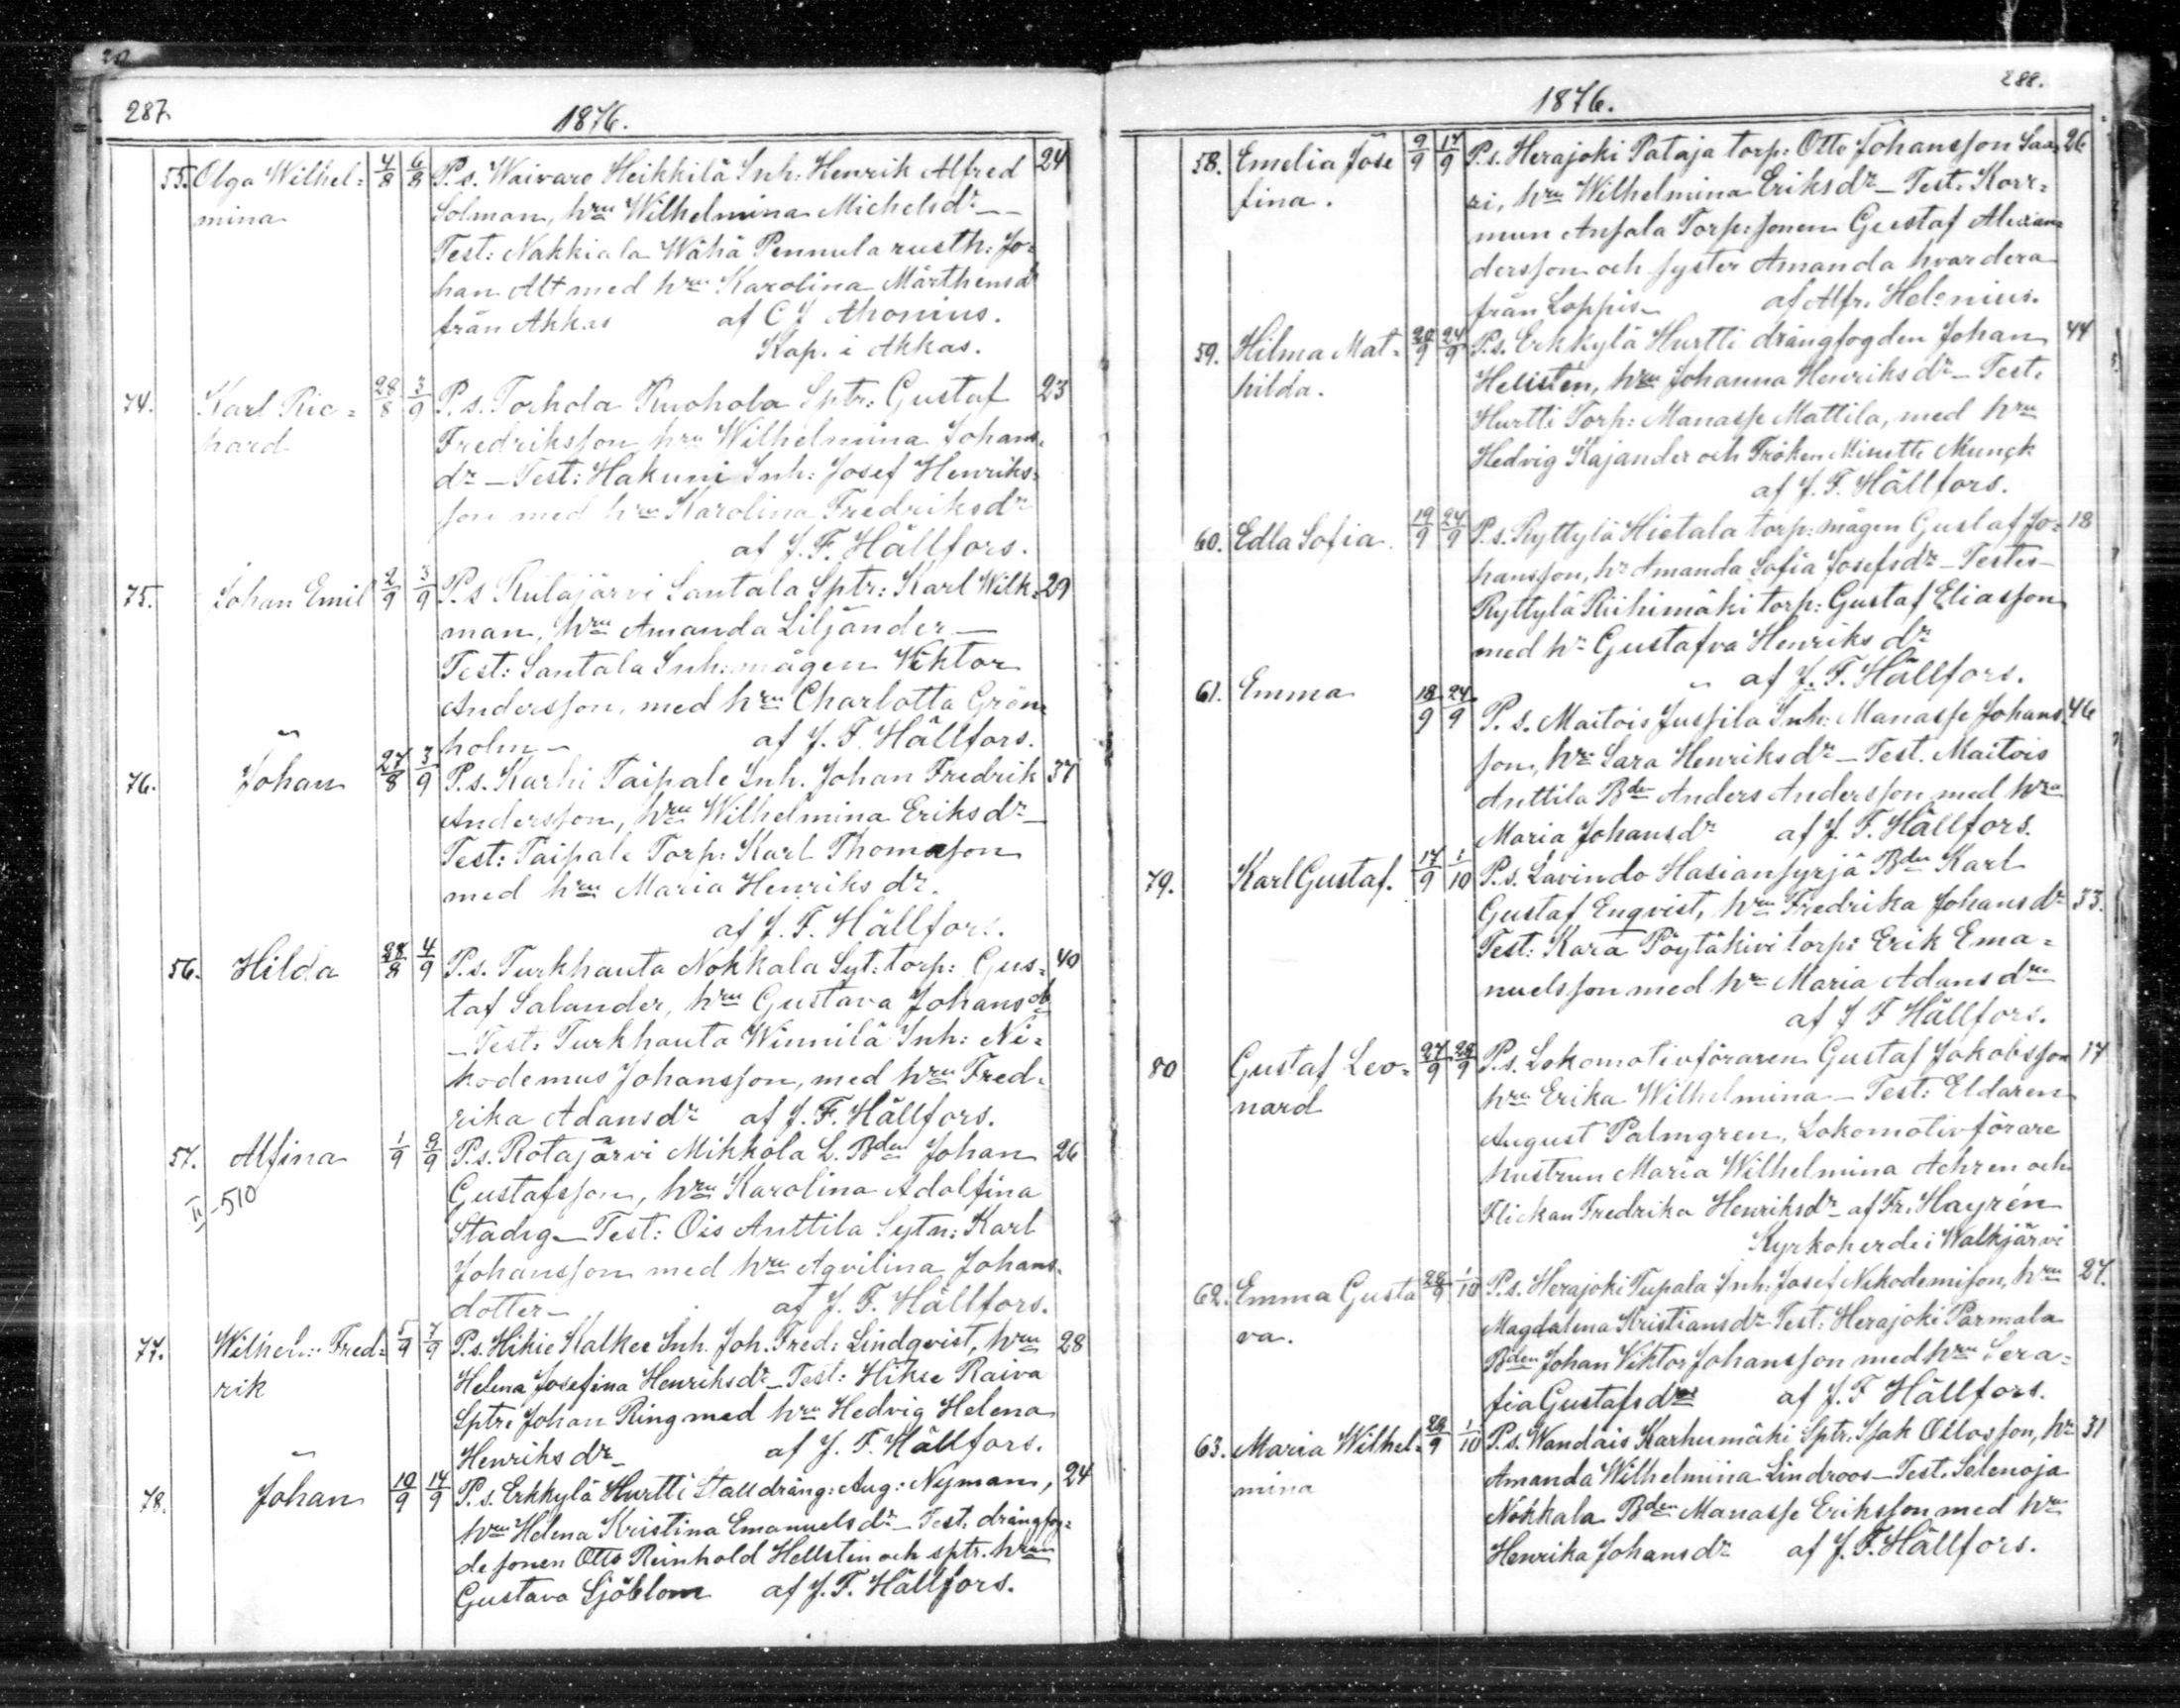 287.
1876.
55. Olga Wilhel= 4/8 6/8 P.s. Waivaro Heikkilä Inh: Henrik Alfred 24
mina Solman, hru Wilhelmina Michelsdr —
Test: Nakkiala Wähä Pennula rusth: Jo=
han Alt med hru Karolina Mårthensdr
från Akkas af C J Ahonius.
Kap. i Akkas.
74. Karl Ric= 28/8 3/9 P.s. Torhola Kuohola Sptr: Gustaf 23
hard Fredriksson hru Wilhelmina Johans
dr — Test: Hakuni Inh: Josef Henriks=
son med hru Karolina Fredriksdr
af J. F. Hällfors.
75. Johan Emil 2/9 3/9 P.s Kulajärvi Santala Sptr: Karl Wilk= 29
man, hru Amanda Liljander —
Test: Santala Inh: mågen Viktor
Andersson, med hru Charlotta Grön=
holm — af J. F. Hällfors.
76. Johan 27/8 3/9 P.s. Karhi Taipale Inh. Johan Fredrik 37
Andersson, hru Wilhelmina Eriksdr —
Test: Taipale Torp: Karl Thomasson
med hru Maria Henriksdr.
af J. F. Hällfors.
56. Hilda 28/8 4/9 P.s. Turkhauta Nokkala Syt: torp: Gus= 40
taf Salander, hru Gustava Johansdr
— Test: Turkhauta Winnilä Inh: Ni=
kodemus Johansson, med hru Fred=
rika Adamsdr af J. F. Hällfors.
57. Alfina 1/9 9/9 P.s. Rotajärvi Mikkola L. Bden Johan 26
II-510 Gustafsson, hru Karolina Adolfina
Stadig — Test: Ois Anttila Sytn: Karl
Johansson med hru Aqvilina Johans=
dotter — af J. F. Hällfors.
77. Wilhel: Fred= 5/9 7/9 P.s. Hikie Kalkee Inh. Joh. Fred: Lindqvist, hru 28
rik Helena Josefina Henriksdr — Test: Hikie Raiva
Sptr: Johan Ring med hru Hedvig Helena
Henriksdr — af J. F. Hällfors.
78. Johan 10/9 17/9 P.s. Erkkylä Hurtti Stalldräng: Aug: Nyman, 24
hru Helena Kristina Emanuelsdr — Test: drängfog=
desonen Otto Reinhold Hellstén och sptr. hrun
Gustava Sjöblom af J. F. Hällfors.
288.
1876.
58. Emelia Jose 9/9 17/9 P.s. Herajoki Pataja torp: Otto Johansson Saa= 26
fina. ri, hru Wilhelmina Eriksdr — Test. Korr=
mun Ansala Torp: sonen Gustaf Alexan=
dersson och syster Amanda hvardera
från Loppis — af Alfr. Helenius.
59. Hilma Mat= 20/9 24/9 P.s. Erkkylä Hurtti drängfogden Johan 44
hilda. Hellstén, hru Johanna Henriksdr — Test.
Hurtti Torp: Manasse Mattila, med hru
Hedvig Kajander och Fröken Minette Munck
af J. F. Hällfors.
60. Edla Sofia 19/9 24/9 P.s. Ryttylä Hietala torp: mågen Gustaf Jo= 18
hansson, hr Amanda Sofia Josefsdr — Testes —
Ryttylä Riihimäki torp: Gustaf Eliasson
med hr Gustafva Henriksdr
af J. F. Hällfors.
61. Emma 18/9 24/9 P.s. Maitois Jussila Inh: Manasse Johans 46
son, hru Sara Henriksdr — Test. Maitois
Anttila Bden Anders Andersson med hru
Maria Johansdr af J. F. Hällfors.
79. Karl Gustaf. 17/9 1/10 P.s. Lavindo Hasiansyrjä Bden Karl
Gustaf Enqvist, hru Fredrika Johansdr 33.
Test: Kara Pöytäkivi torp: Erik Ema=
nuelsson med hru Maria Adamsdr
af J F Hällfors.
80 Gustaf Leo= 27/9 29/9 P.s. Lokomotivföraren Gustaf Jakobsson 17
nard hru Erika Wilhelmina — Test: Eldaren
August Palmgren, Lokomotivförare
hustrun Maria Wilhelmina Achren och
Flickan Fredrika Henriksdr af Fr. Hayrén
Kyrkoherde i Walkjärvi
62. Emma Gusta 28/9 1/10 P.s. Herajoki Tupala Inh: Josef Nikodemison, hru 27.
va. Magdalena Kristiansdr Test: Herajoki Parmala
Bden Johan Viktor Johansson med hru Sera=
fia Gustafsdr af J. F Hällfors.
63. Maria Wilhel= 29/9 1/10 P.s. Wandais Karhumäki Sptr. Isak Ottosson, hr 31
mina Amanda Wilhelmina Lindroos — Test. Selenoja
Nokkala Bden Manasse Eriksson med hru
Henrika Johansdr af J. F. Hällfors.